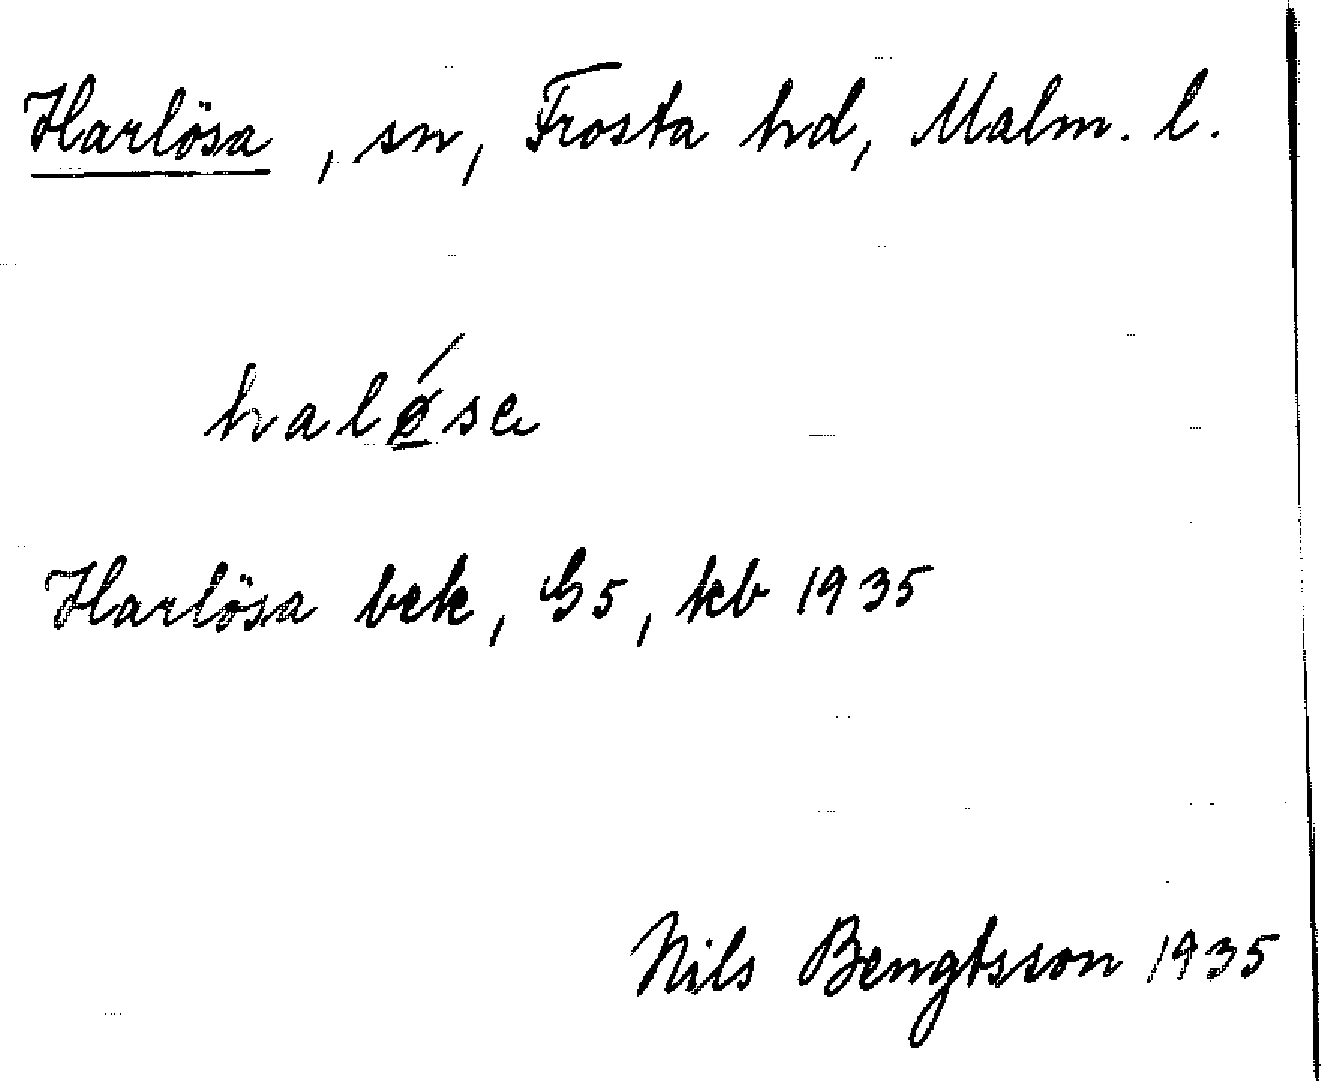 Harlösa, sn, Frosta hd, Malm. l.
halǿ̲sa
Harlösa bek, G5, kb 1935
Nils Bengtsson 1935